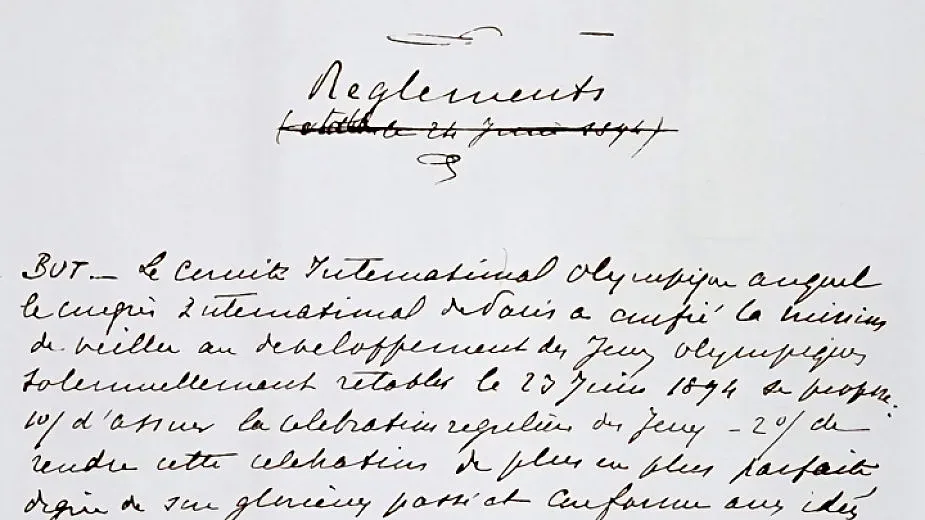 Reglements
le 24 Juin 1894)
BUT. — Le Comité International Olympique auquel
le congrès International de Paris a confié la mission
de veiller au developpement des Jeux olympiques
solennellement retablis le 23 Juin 1894 se propose:
1o/ d'assurer la celebration reguliere des Jeux — 2o/ de
rendre cette celebration de plus en plus parfaite
digne de son glorieux passé et conforme aux idées